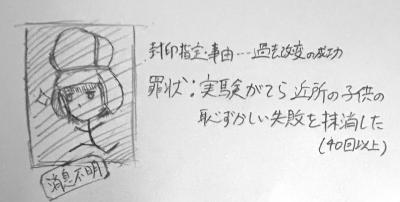 封印指定・事由…過去改変の成功
罪状:実験がてら近所の子供の
恥ずかしい失敗を抹消した
(40回以上)
消息不明